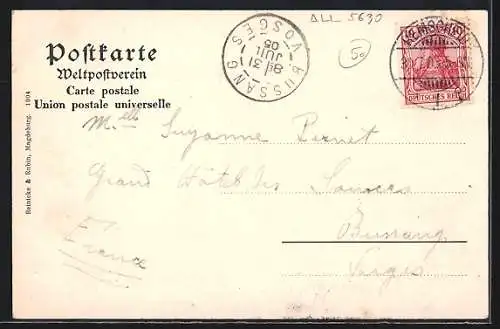 ALL 5630
50
Postkarte
Weltpostverein
Carte postale
Union postale universelle
BUSSANG
VOSGES
8E 31
JUIL
05
DEUTSCHES REICH
Reinicke & Rubin, Magdeburg. 1904
Melle Suzanne Pernet
Grand Hôtel des Sources
Bussang
Vosges
France